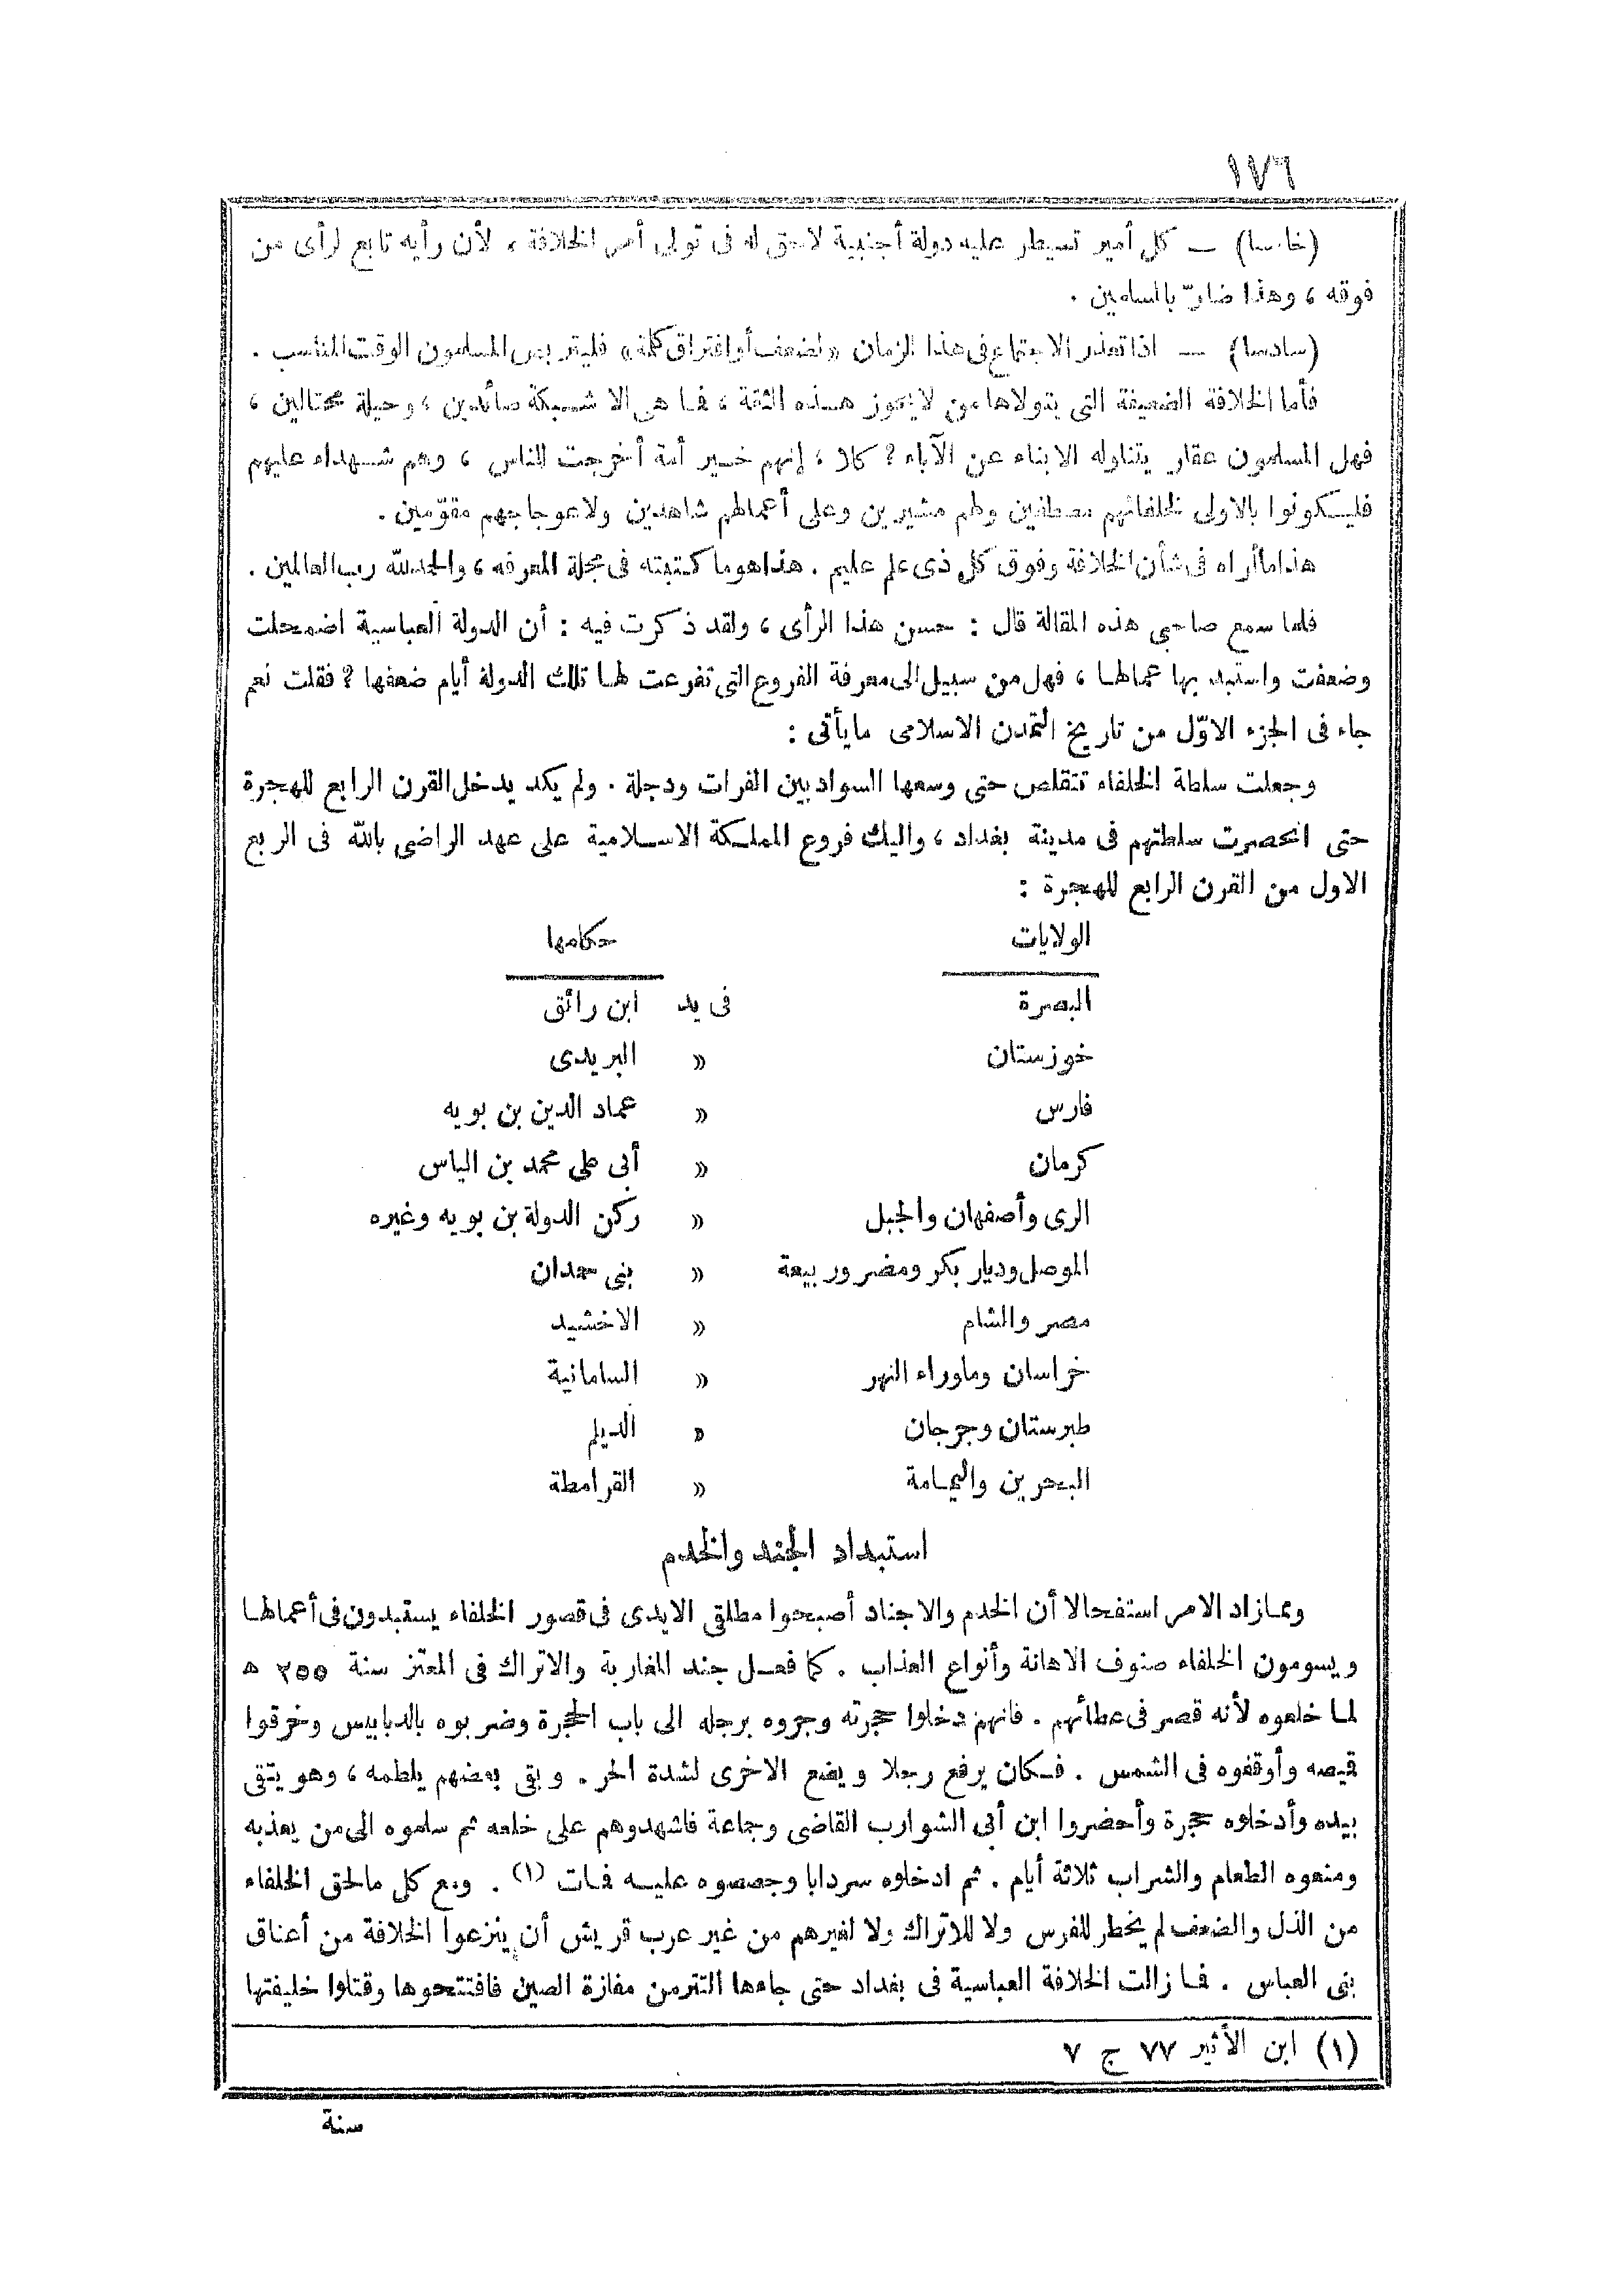 ١٧٦
(خامسا) — كل أمير تسيطر عليه دولة أجنبية لاحق له فى تولى أمر الخلافة ، لأن رأيه تابع لرأى من
فوقه ، وهذا ضارّ بالمسلمين .
(سادسا) — اذا تعذر الاجتماع فى هذا الزمان «لضعف أو افتراق كلمة» فليتربص المسلمون الوقت المناسب .
فأما الخلافة الضعيفة التى يتولاها من لا يحوز هذه الثقة ، فما هى الا شبكة صائدين ، وحيلة محتالين ،
فهل المسلمون عقار يتناوله الابناء عن الآباء ؟ كلا ، إنهم خير أمة أخرجت للناس ، وهم شهداء عليهم
فليكونوا بالاولى لخلفائهم مصطفين ولهم مشيرين وعلى أعمالهم شاهدين ولاعوجاجهم مقوّمين .
هذا ما أراه فى شأن الخلافة وفوق كل ذى علم عليم . هذا هو ما كتبته فى مجلة المعرفه ، والحمد لله رب العالمين .
فلما سمع صاحبى هذه المقالة قال : حسن هذا الرأى ، ولقد ذكرت فيه : أن الدولة العباسية اضمحلت
وضعفت واستبد بها عمالها ، فهل من سبيل الى معرفة الفروع التى تفرعت لها تلك الدولة أيام ضعفها ؟ فقلت نعم
جاء فى الجزء الاوّل من تاريخ التمدن الاسلامى ما يأتى :
وجعلت سلطة الخلفاء تتقلص حتى وسعها السواد بين الفرات ودجلة . ولم يكد يدخل القرن الرابع للهجرة
حتى انحصرت سلطتهم فى مدينة بغداد ، واليك فروع المملكة الاسلامية على عهد الراضى بالله فى الربع
الاول من القرن الرابع للهجرة :
الولايات حكامها
البصرة فى يد ابن رائق
خوزستان » البريدى
فارس » عماد الدين بن بويه
كرمان » أبى على محمد بن الياس
الرى وأصفهان والجبل » ركن الدولة بن بويه وغيره
الموصل وديار بكر ومضر وربيعة » بنى حمدان
مصر والشام » الاخشيد
خراسان وماوراء النهر » السامانية
طبرستان وجرجان » الديلم
البحرين واليمامة » القرامطة
استبداد الجند والخدم
ومما زاد الامر استفحالا أن الخدم والاجناد أصبحوا مطلقى الايدى فى قصور الخلفاء يستبدون فى أعمالها
ويسومون الخلفاء صنوف الاهانة وأنواع العذاب . كما فعل جند المغاربة والاتراك فى المعتز سنة ٢٥٥ ه
لما خلعوه لأنه قصر فى عطائهم . فانهم دخلوا حجرته وجروه برجله الى باب الحجرة وضربوه بالدبابيس وخرقوا
قميصه وأوقفوه فى الشمس . فكان يرفع رجلا ويضع الاخرى لشدة الحر . وبقى بعضهم يلطمه ، وهو يتقى
بيده وأدخلوه حجرة وأحضروا ابن أبى الشوارب القاضى وجماعة فاشهدوهم على خلعه ثم سلموه الى من يعذبه
ومنعوه الطعام والشراب ثلاثة أيام . ثم ادخلوه سردابا وجصصوه عليه فمات (١) . ومع كل ما لحق الخلفاء
من الذل والضعف لم يخطر للفرس ولا للاتراك ولا لغيرهم من غير عرب قريش أن ينزعوا الخلافة من أعناق
بنى العباس . فما زالت الخلافة العباسية فى بغداد حتى جاءها التتر من مفازة الصين فافتتحوها وقتلوا خليفتها
(١) ابن الأثير ٧٧ ج ٧
سنة